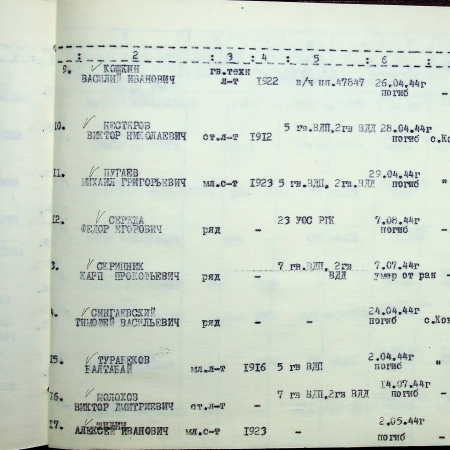 : 2 : 3 : 4 : 5 : 6 :
9. КОШКИН гв.техн
ВАСИЛИЙ ИВАНОВИЧ л-т 1922 в/ч пп.47847 26.04.44г
погиб -
10. НЕСТЕРОВ 5 гв.ВДП,2гв ВДД 28.04.44г
ВИКТОР НИКОЛАЕВИЧ ст.л-т 1912 погиб с.Ко
11. ПУГАЕВ 29.04.44г
МИХАИЛ ГРИГОРЬЕВИЧ мл.с-т 1923 5 гв.ВДП, 2гв.ВДД погиб "
12. СЕРЕДА 23 УОС РГК 7.08.44г
ФЕДОР ЕГОРОВИЧ ряд - погиб -
3. СКРИПНИК 7 гв.ВДП, 2гв 7.07.44г
КАРП ПРОКОФЬЕВИЧ ряд - ВДД умер от ран -
4. СИНГАЕВСКИЙ 24.04.44г
ТИМОФЕЙ ВАСИЛЬЕВИЧ ряд - - погиб с.Ко
15. ТУРАБЕКОВ 2.04.44г
БАЛТАБАЙ мл.л-т 1916 5 гв ВДП погиб "
16. 7 гв ВДП,2гв ВДД 14.07.44г
ВИКТОР ДМИТРИЕВИЧ ст.л-т - погиб -
17. 2.05.44г
АЛЕКСЕЙ ИВАНОВИЧ мл.с-т 1923 - погиб -